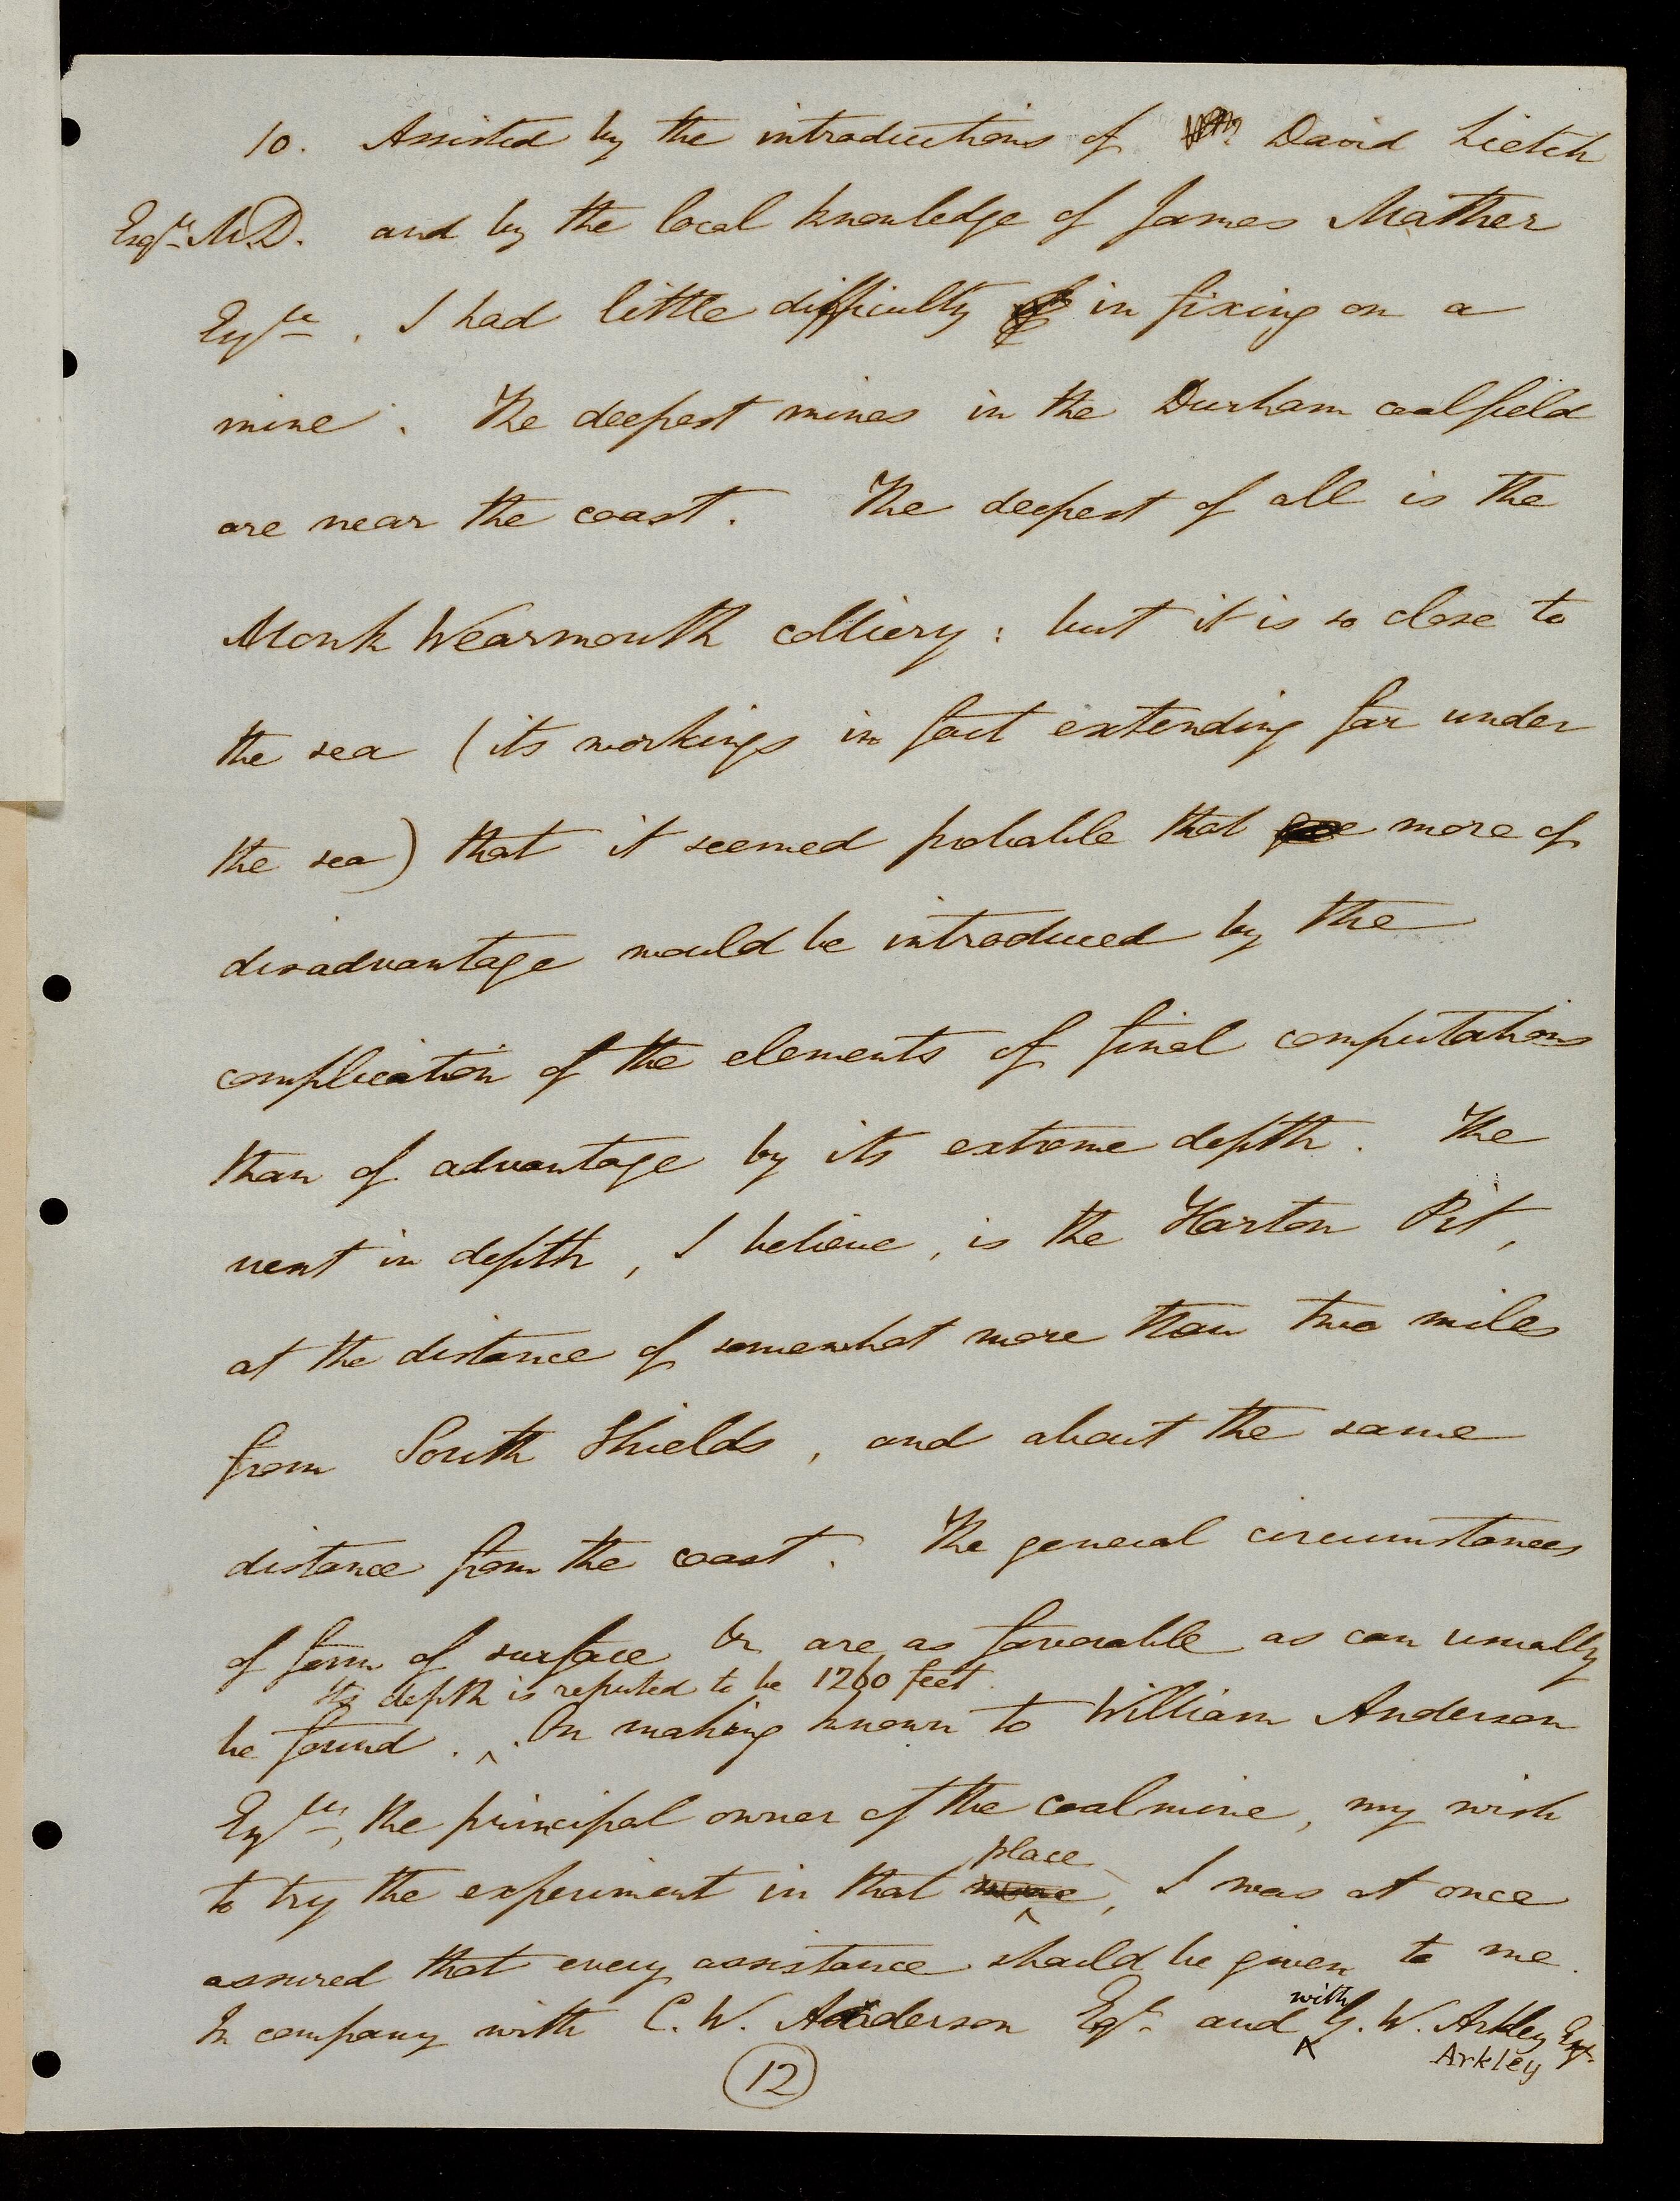 10. Assisted by the introductions of David Lietch
Esqre M.D. and by the local knowledge of James Mather
Esqre, I had little difficulty in fixing on a
mine. The deepest mines in the Durham coalfield
are near the coast. The deepest of all is the
Monk Wearmouth colliery: but it is so close to
the sea (its workings in fact extending far under
the sea) that it seemed probable that more of
disadvantage would be introduced by the
complication of the elements of final computations
than of advantage by its extreme depth. The
next in depth, I believe, is the Harton Pit,
at the distance of somewhat more than two miles
from South Shields, and about the same
distance from the coast. The general circumstances
of form of surface are as favorable as can usually
Its depth is reputed to be 1260 feet.
be found. ^ On making known to William Anderson
Esqre, the principal owner of the coalmine, my wish
place
to try the experiment in that mine, I was at once
assured that every assistance should be given to me.
with
In company with C. W. Anderson Esqr. and G. W. Arkley Esqr.
Arkley
12